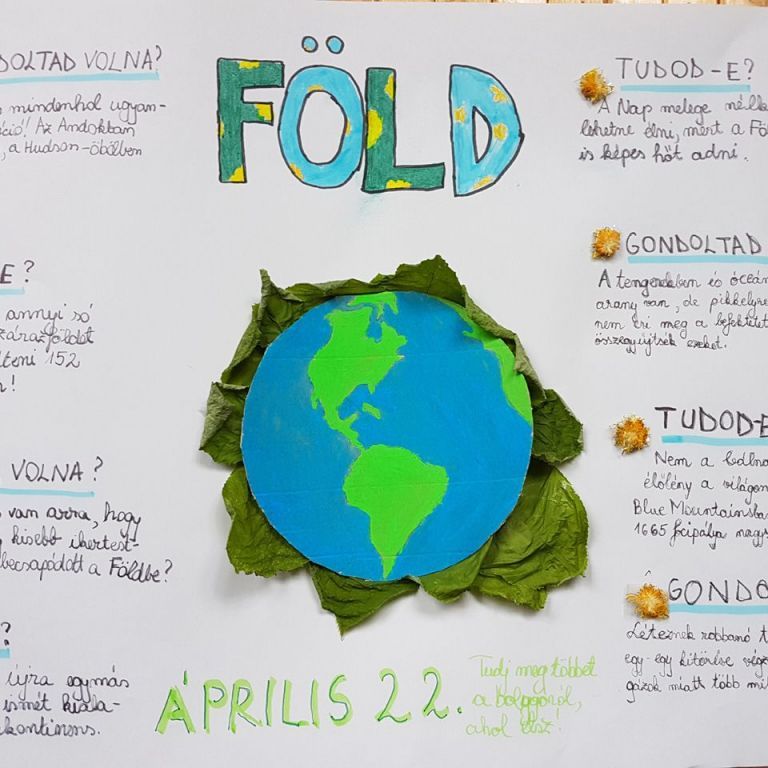 FÖLD
DOLTAD VOLNA?
mindenhol ugyan-
ció! Az Andokban
, a Hudson-öbölben
E?
annyi só
szárazföldet
íteni 152
!
VOLNA?
van arra, hogy
kisebb ikertest-
becsapódott a Földbe?
?
újra egymás
ismét kiala-
kontinens.
TUDOD-E?
A Nap melege nélk
lehetne élni, mert a Fö
is képes hőt adni.
GONDOLTAD
A tengerekben és óceán
arany van, de pikkelyre
nem éri meg a befektetet
összegyűjtsék ezeket.
TUDOD-E
Nem a
élőlény a világon
Blue Mountainsba
1665 focipálya nagys
GONDO
Léteznek robbanó t
egy-egy kitörése vége
gázok miatt több mi
ÁPRILIS 22.
Tudj meg többet
a bolygóról,
ahol élsz!